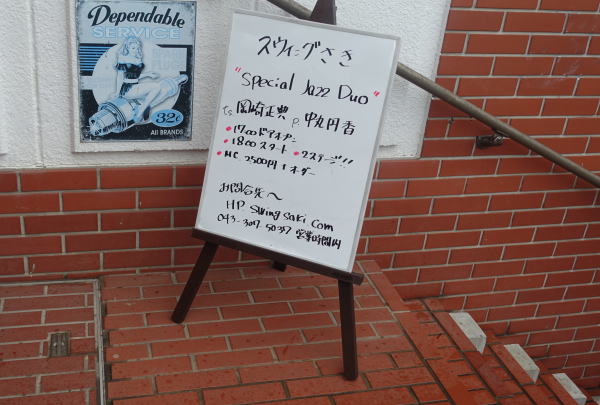 Dependable
SERVICE
32¢
All BRANDS
スウィングさき
"Special Jazz Duo"
Ts 岡崎正典 P. 中丸円香
• 17:00ドアオープン
• 18:00スタート • 2ステージ!!
• MC. 2500円 1オーダー
お問合先へ
HP Swingsaki Com
043-307-5037 営業時間内